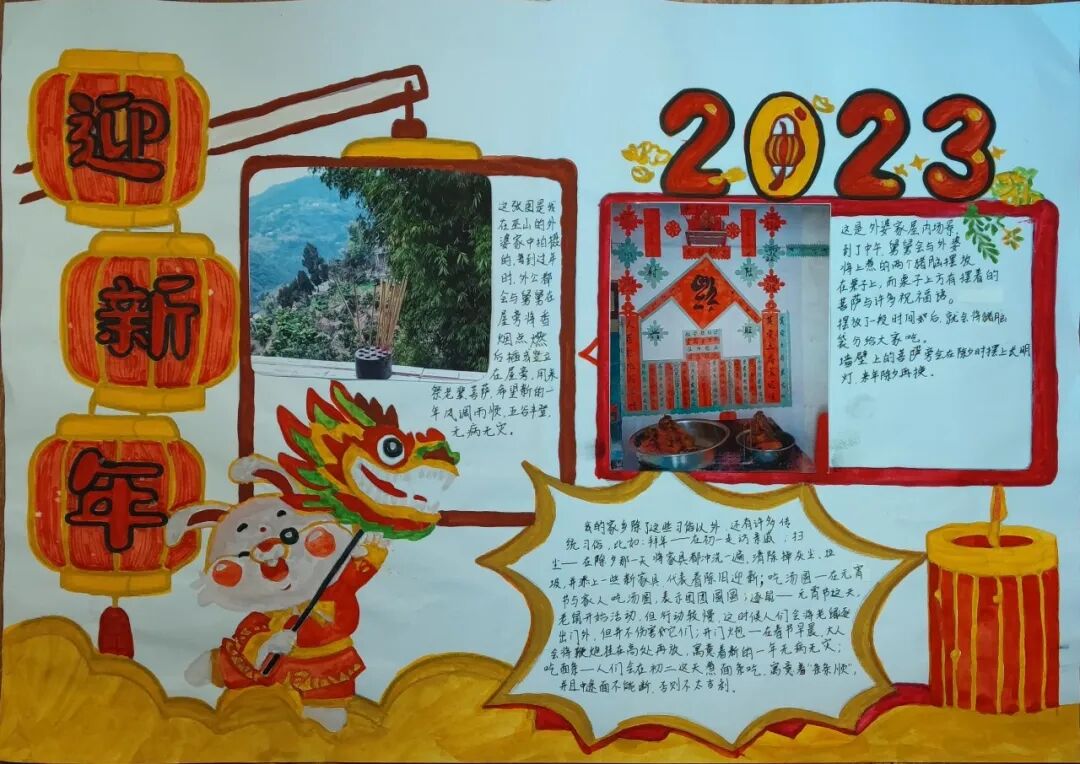 迎
新
年
2023
这张图是我
在巫山的外
婆家中拍摄
的,每到过年
时,外公都
会与舅舅在
屋旁将香
烟点燃
后插或竖立
在屋旁,用来
祭老辈菩萨,希望新的一
年风调雨顺,五谷丰登,
无病无灾。
这是外婆家屋内场景,
到了中午,舅舅会与外婆
将上煮的两个猪脑摆放
在桌子上,而桌子上方有摆着的
菩萨与许多祝福语。
摆放了一段时间如后,就会将猪脑
袋分给大家吃。
墙壁上的菩萨旁会在除夕时摆上长明
灯,来年除夕再换。
福
我的家乡除了这些习俗以外,还有许多传
统习俗,比如:拜年——在初一走访亲戚;扫
尘——在除夕那一天将家具都冲洗一遍,清除掉灰尘,垃
圾,并添上一些新家具,代表着除旧迎新;吃汤圆——在元宵
节与家人吃汤圆,表示团团圆圆;逐鼠——元宵节这天,
老鼠开始活动,但行动较慢,这时候人们会将老鼠逐
出门外,但并不伤害它们;开门炮——在春节早晨,大人
会将鞭炮挂在高处再放,寓意着新的一年无病无灾;
吃面条——人们会在初二这天煮面条吃,寓意着“条条顺”,
并且中途面不能断,否则不太吉利。